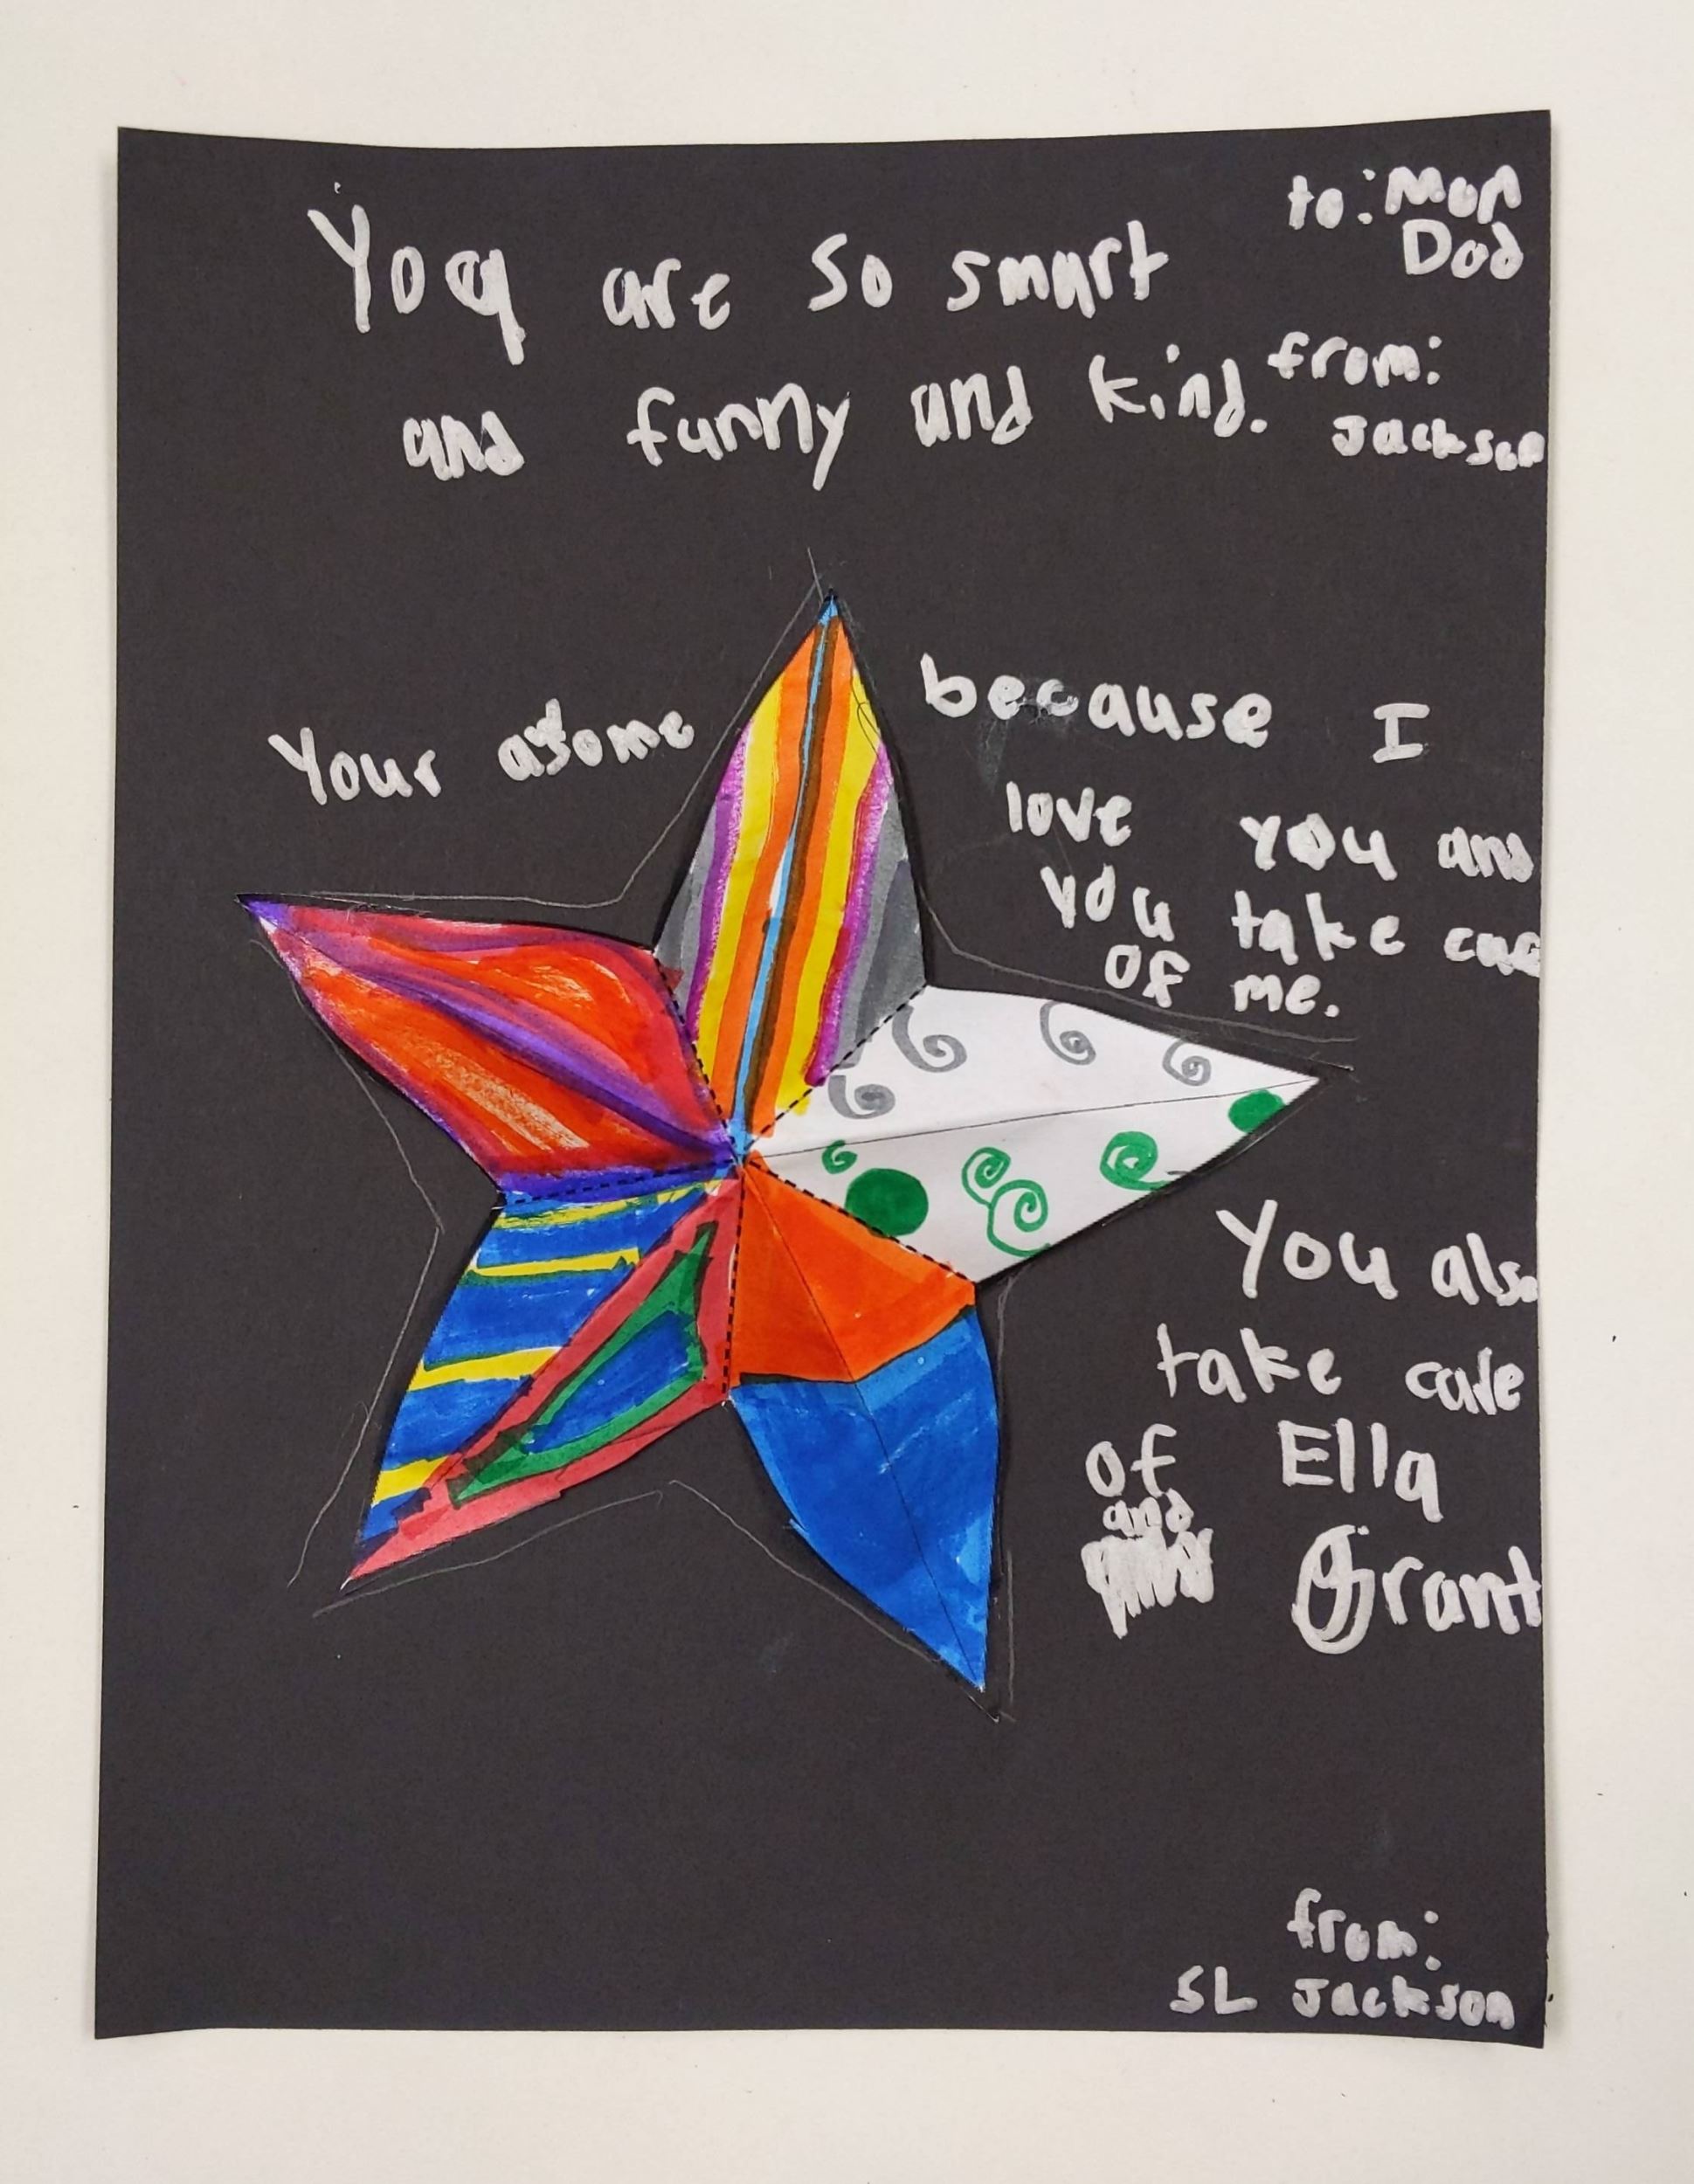 to: Mom
Dad
You are so smart
and funny and kind.
from:
Jackson
Your asome
because I
love you and
you take care
of me.
You also
take care
of Ella
and
Grant
from:
SL Jackson